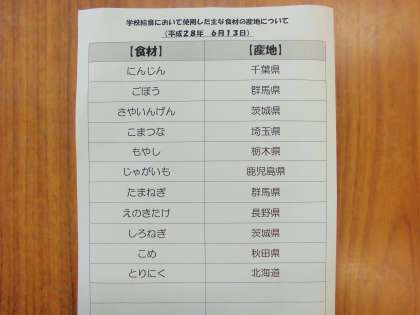 学校給食において使用した主な食材の産地について
(平成28年 6月13日)
【食材】 【産地】
にんじん 千葉県
ごぼう 群馬県
さやいんげん 茨城県
こまつな 埼玉県
もやし 栃木県
じゃがいも 鹿児島県
たまねぎ 群馬県
えのきたけ 長野県
しろねぎ 茨城県
こめ 秋田県
とりにく 北海道